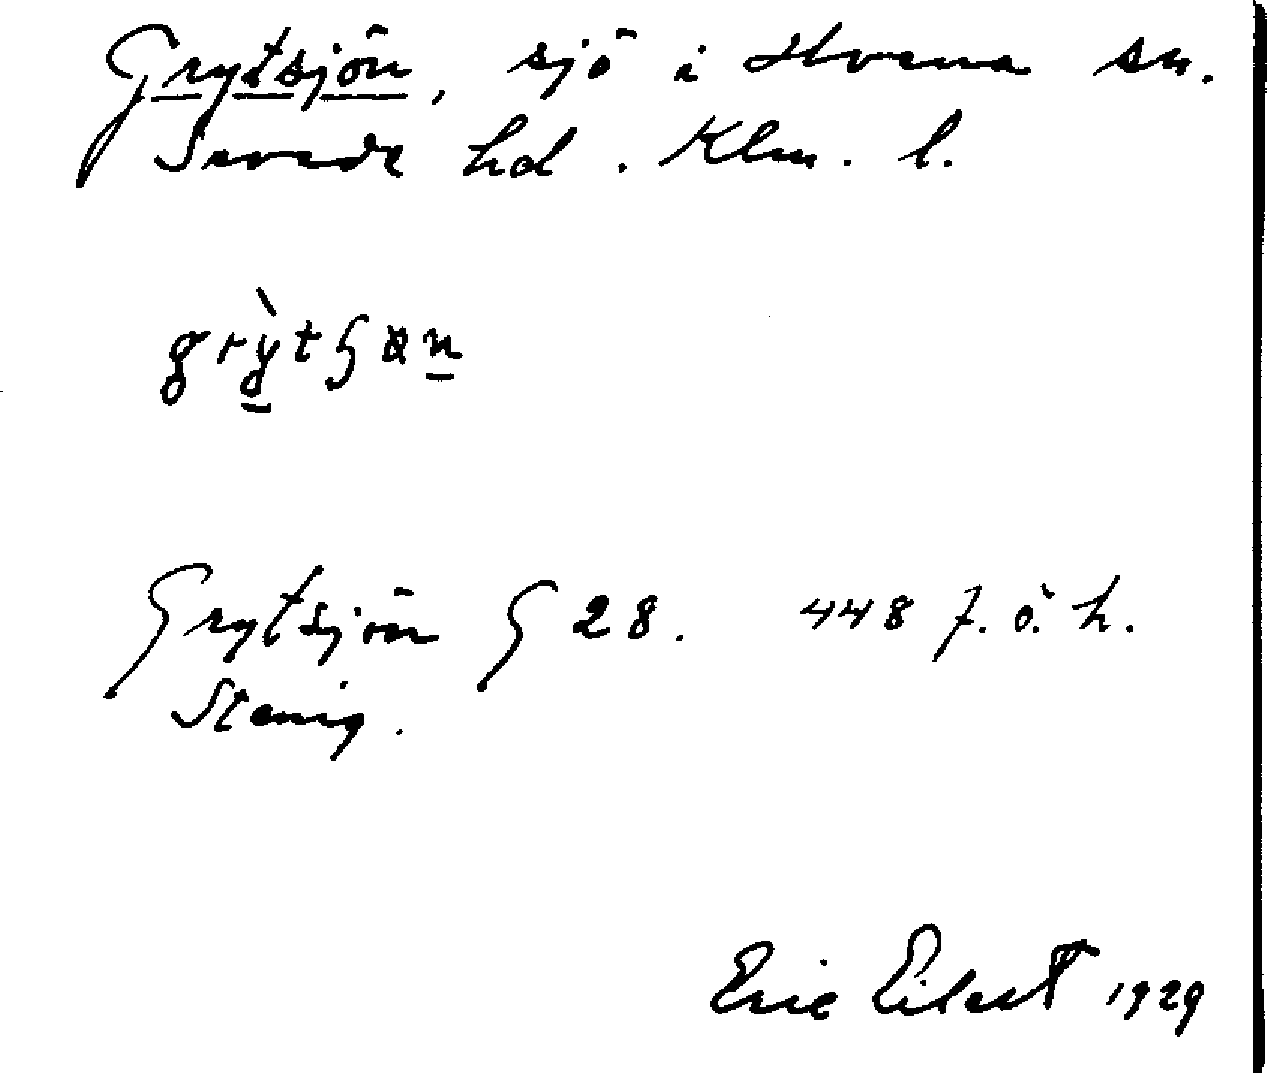 Grytsjön, sjö i Hvena sn.
Sevede hd. Klm. l.
Grytsjön G 28. 448 f. ö. h.
Stenig.
Eric Eilert 1929